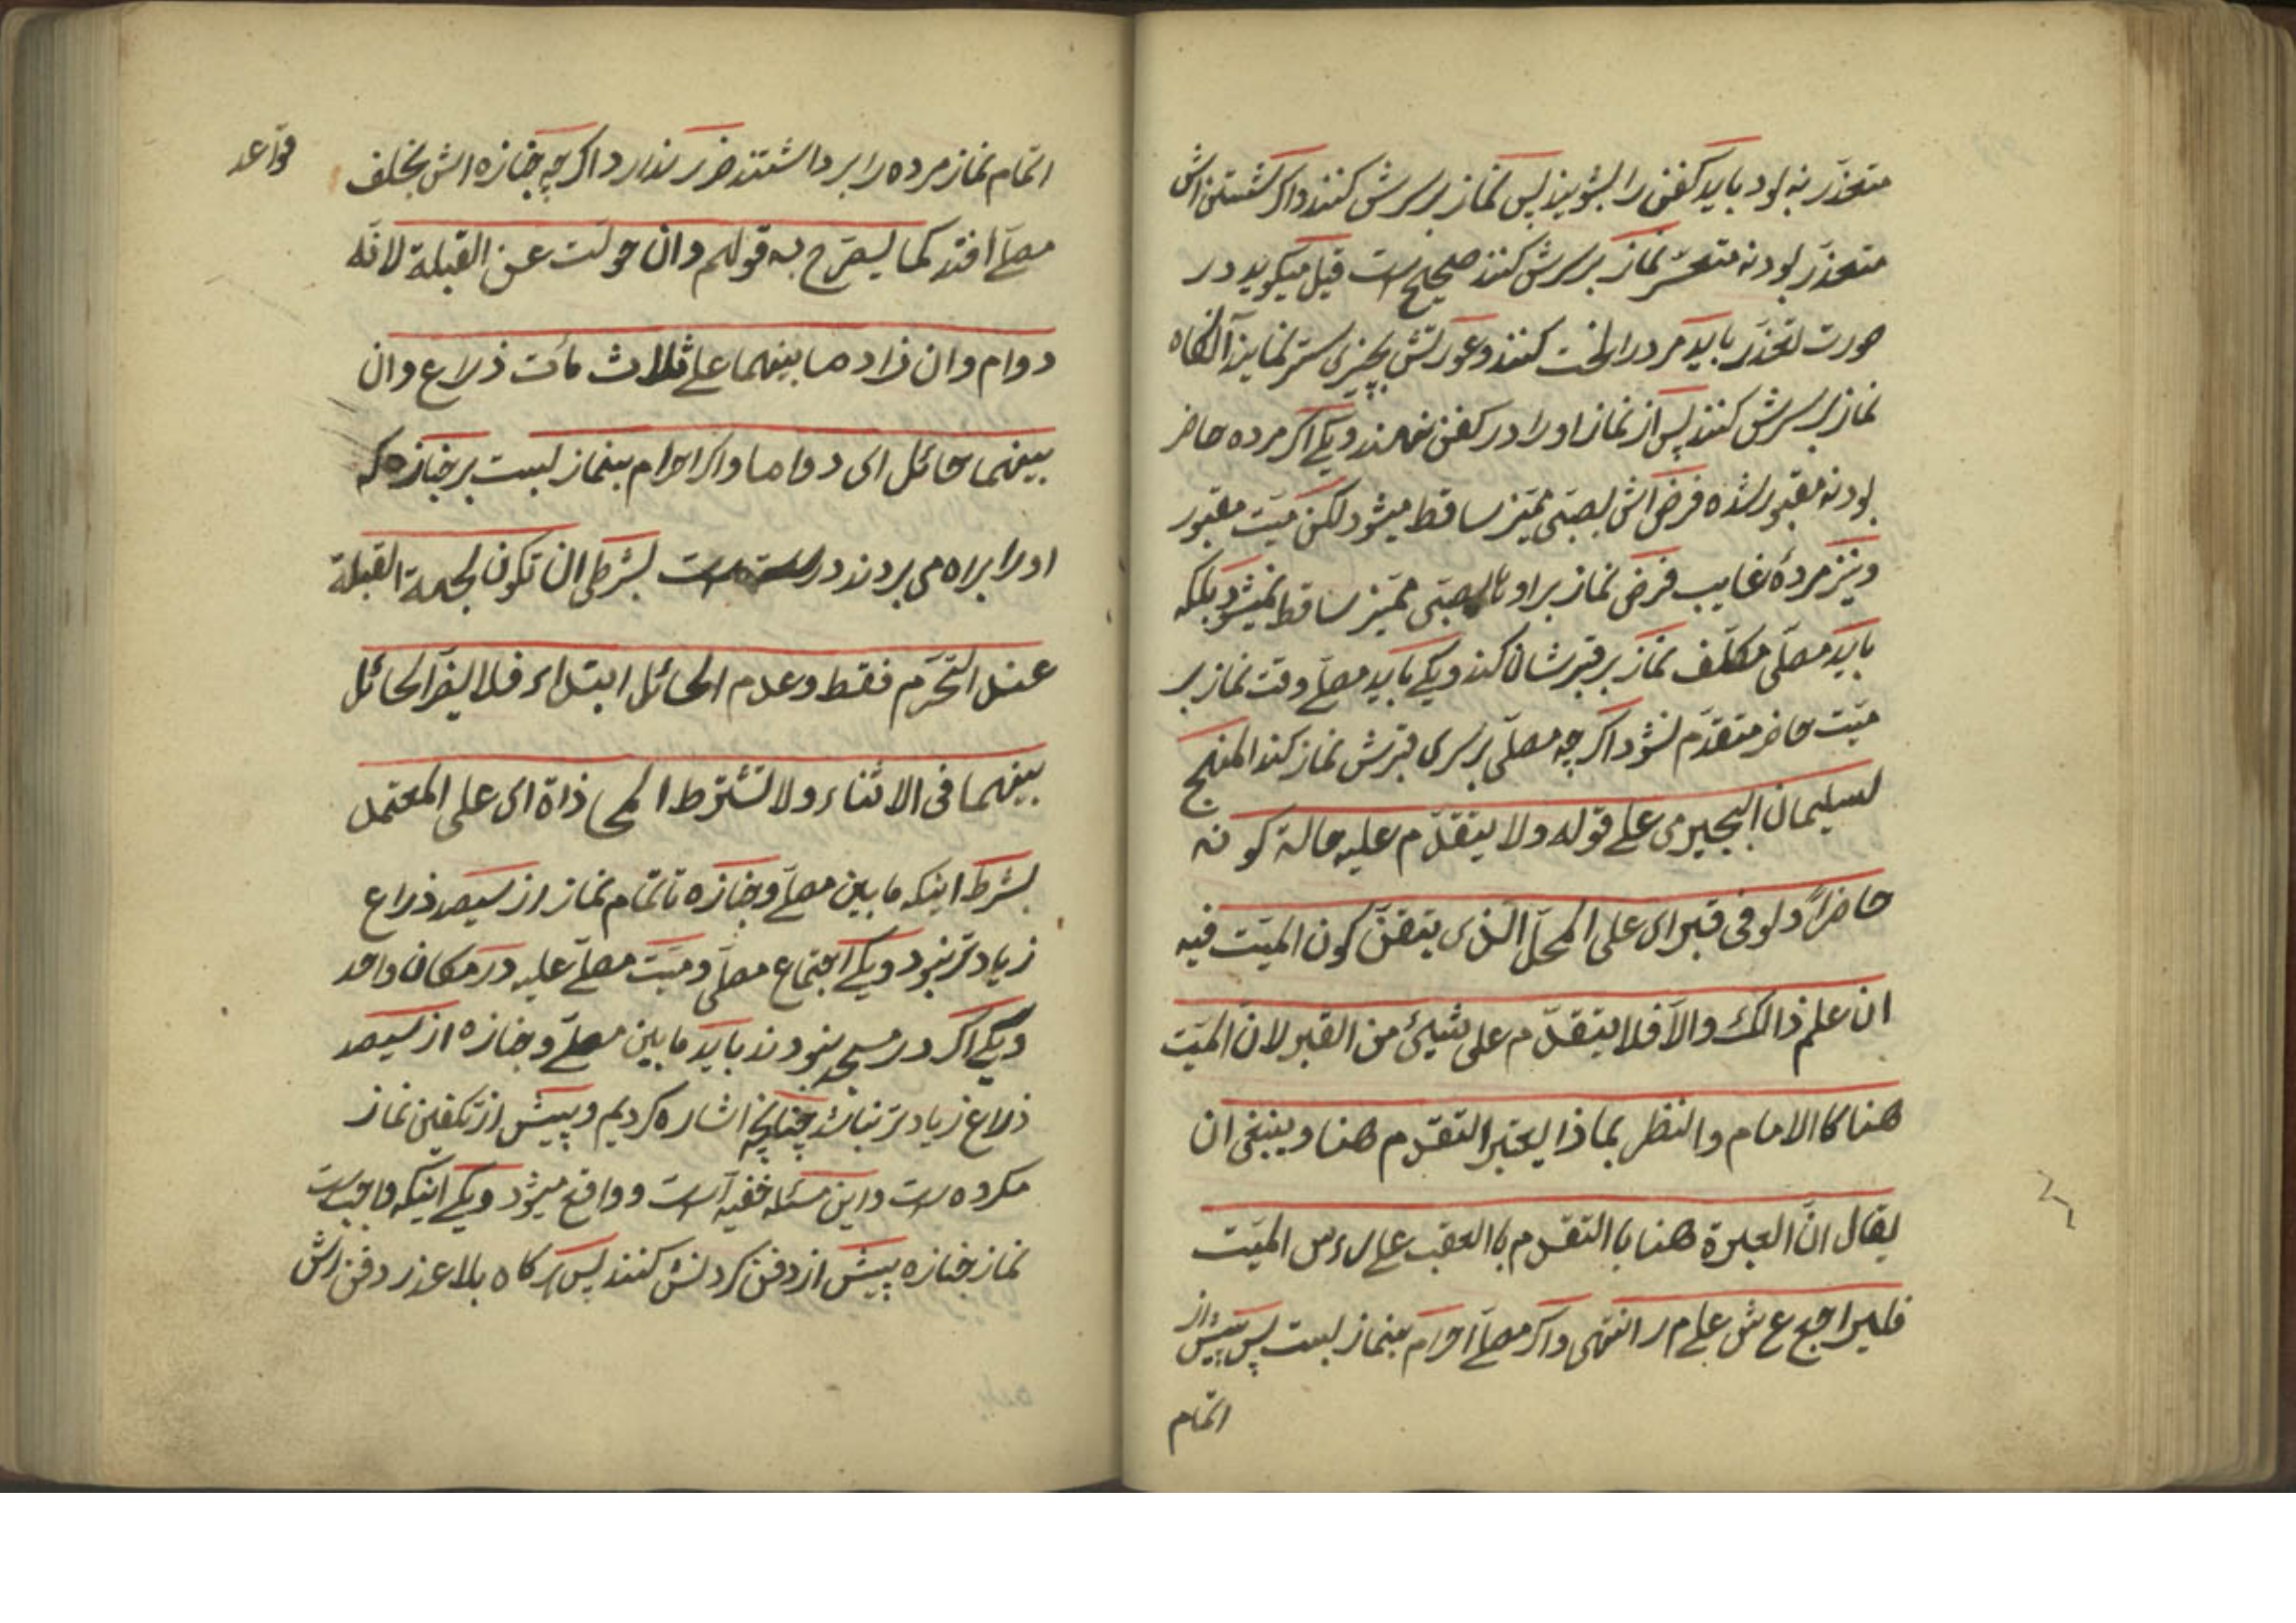 متعذر نه بود باید کفن را بشویند پس نماز بر سرش کنند واکر شستن اش
متعذر بود نه متعسر نماز بر سرش کنند صحیح است قیل میکوید در
صورت تعذر باید مرد را لخت کنند وعورتش بچیزی ستر نمایند آنکاه
نماز بر سرش کنند پس از نماز او را در کفن نهند ویکی اکر مرده حاضر
بود نه مقبور شده فرض اش بصبی ممیز ساقط میشود لکن میت مقبور
ونیز مردۀ غایب فرض نماز بر او با صبی ممیز ساقط نمیشود بلکه
باید مصلی مکلف نماز بر قبرشان کند ویکی باید مصلی وقت نماز بر
میت حاضر متقدم نشود اکر چه مصلی بر سری قبرش نماز کند المنهج
لسلیمان البجیرمی علی قوله ولا یتقدم علیه حالة کونه
حاضرًا ولو فی قبر ای علی المحل الذی یتقن کون المیت فیه
ان علم ذالک والا فلا یتقدم علی شیئ من القبر لان المیت
هنا کا الامام والنظر بماذا یعتبر التقدم هنا وینبغی ان
یقال ان العبرة هنا با التقدم با العقب علی رءس المیت
فلیراجع ع ش علی م ر انتهی واکر مصلی احرام بنماز بست پس پیش از
اتمام
قواعد
اتمام نماز مرده را برداشتند ضرر ندارد اکر چه جنازه اش بخلف
مصلی افتد کما یصرح به قولهم وان حولت عن القبلة لانه
دوام وان زاد ما بینهما علی ثلاث مأت ذراع وان
بینهما حائل ای دواما واکر احرام بنماز بست بر جنازه که
او را براه می بردند درست است بشرطی ان تکون لجهة القبلة
عند التحرم فقط وعدم الحائل ابتداء فلا یضر الحائل
بینهما فی الاثناء ولا تشترط المحاذاة ای علی المعتمد
بشرط اینکه ما بین مصلی وجنازه تا تمام نماز از سیصد ذراع
زیاد تر نبود ویکی اجتماع مصلی ومیت مصلی علیه در مکان واحد
ویکی اکر در مسجد نبودند باید ما بین مصلی وجنازه از سیصد
ذراع زیاد تر نباشد چنانچه اشاره کردیم وپیش از تکفین نماز
مکروه است واین مسئله خفیه است وواقع میشود ویکی اینکه واجب است
نماز جنازه پیش از دفن کردنش کنند پس هرکاه بلا عذر دفن اش